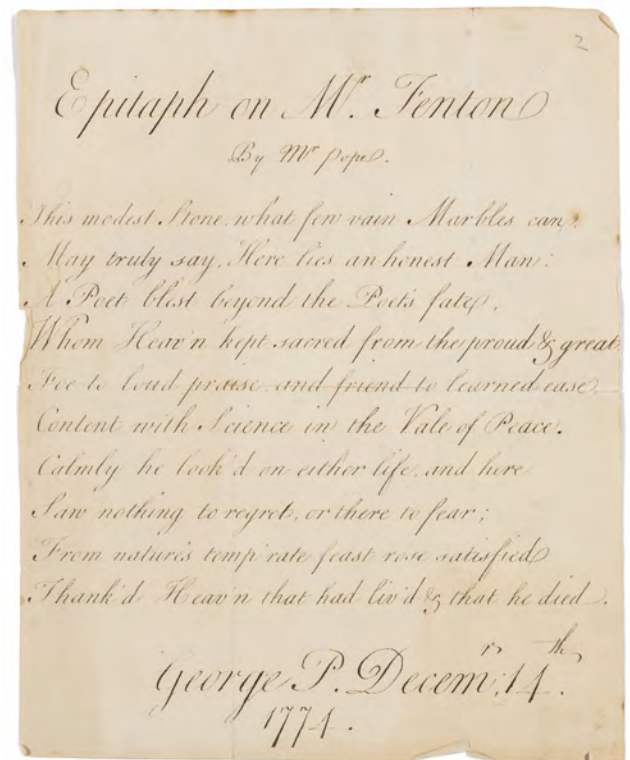 2
Epitaph on Mr. Fenton
By Mr Pope.
This modest Stone, what few vain Marbles can,
May truly say, Here lies an honest Man:
A Poet blest beyond the Poet's fate,
Whom Heav'n kept sacred from the proud & great.
Foe to loud praise, and friend to learned ease,
Content with Science in the Vale of Peace.
Calmly he look'd on either life, and here
Saw nothing to regret, or there to fear;
From nature's temp'rate feast rose satisfied
Thank'd Heav'n that had liv'd & that he died.
George P. Decemr. 14th.
1774.